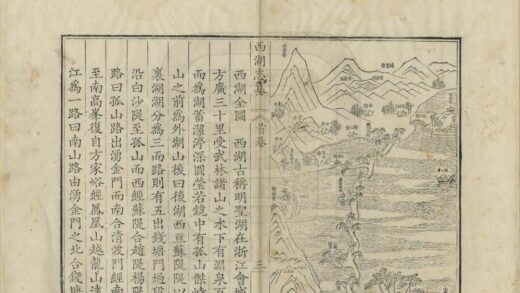 西湖志纂
首卷
三
西湖全圖 西湖古稱明聖湖在浙江會城
方廣三十里受武林諸山之水下有淵泉百
而爲湖蓄潔渟深圓瑩若鏡中有孤山傑峙
山之前爲外湖山後曰後湖西亘蘇隄隄以
裏湖湖分爲三而路則有五出錢塘門過段
沿白沙隄至孤山而西經蘇隄合趙隄楊隄
路曰孤山路出湧金門而南合清波門經南
至南高峯復自方家峪經鳳凰山越龍山達
江爲一路曰南山路由湧金門之北合錢塘